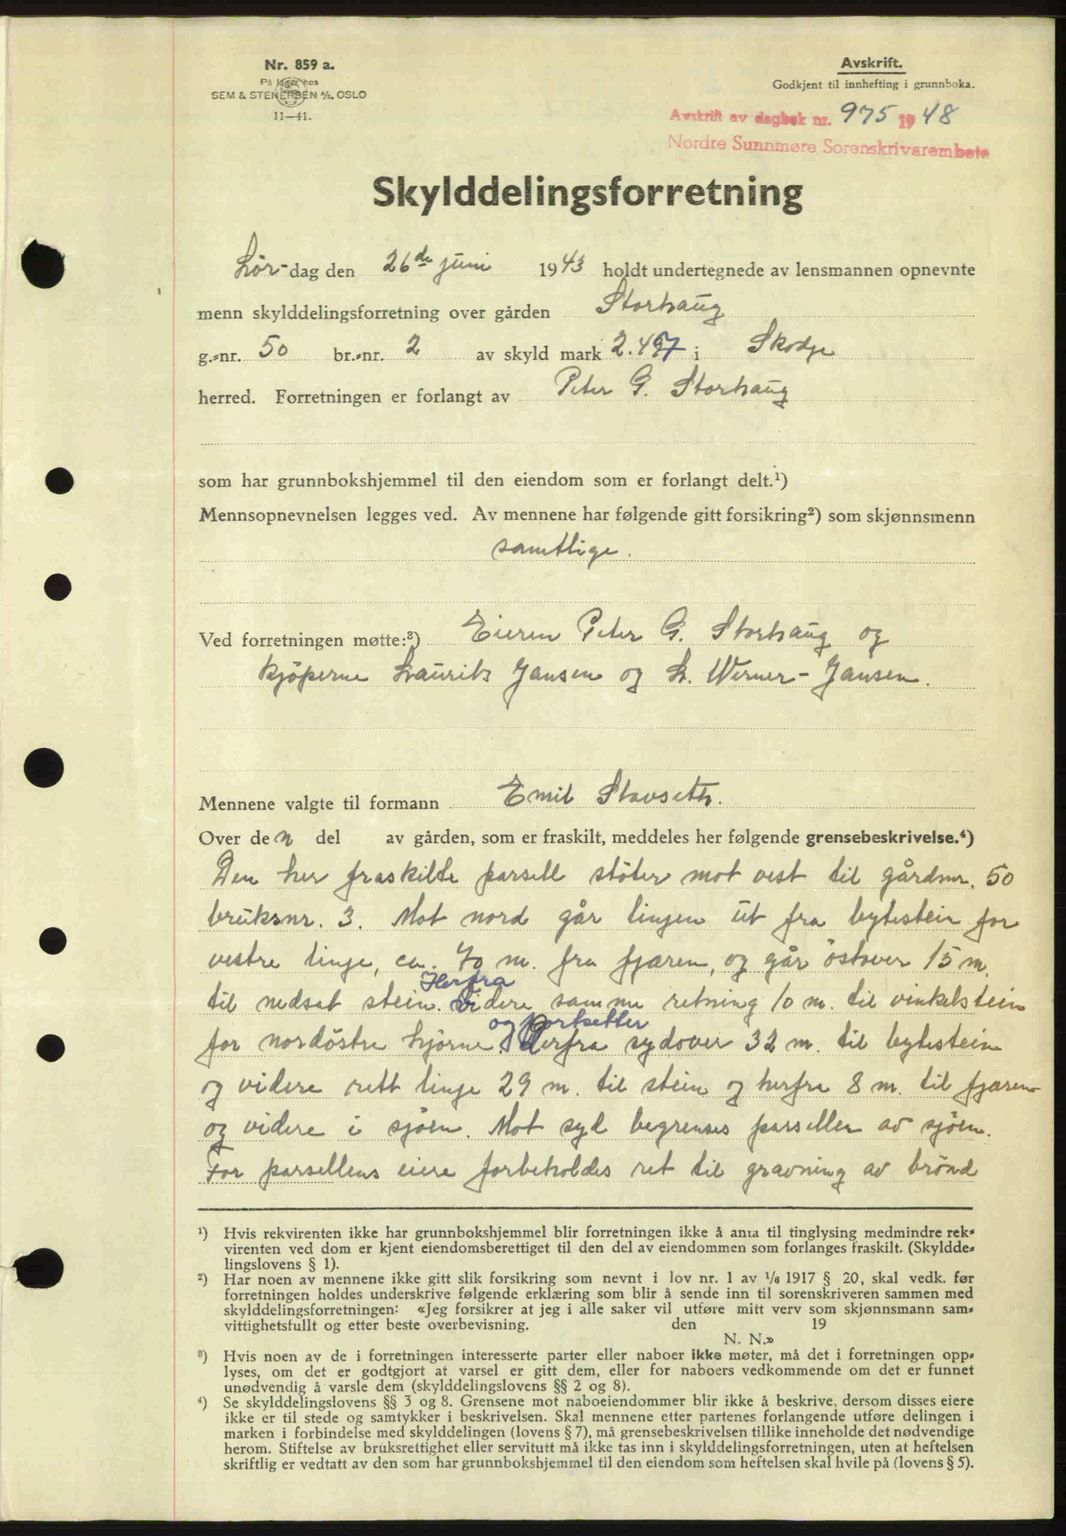 Nr. 859 a.
På lager hos
SEM & STENERSEN A/S, OSLO
11—41.
Avskrift.
Godkjent til innhefting i grunnboka.
Avskrift av dagbok nr. 975 1948
Nordre Sunnmøre Sorenskrivarembete
Skylddelingsforretning
Lør-dag den 26de juni 1943 holdt undertegnede av lensmannen opnevnte
menn skylddelingsforretning over gården Storhaug
g.-nr. 50 br.-nr. 2 av skyld mark 2.497 i Skodje
herred. Forretningen er forlangt av Peter G. Storhaug
som har grunnbokshjemmel til den eiendom som er forlangt delt.¹)
Mennsopnevnelsen legges ved. Av mennene har følgende gitt forsikring²) som skjønnsmenn
samtlige.
Ved forretningen møtte:³) Eieren Peter G. Storhaug og
kjøperne Laurits Jansen og L. Werner-Jansen.
Mennene valgte til formann Emil Stavseth.
Over den del av gården, som er fraskilt, meddeles her følgende grensebeskrivelse.⁴)
Den her fraskilte parsell støter mot vest til gårdnr. 50
bruksnr. 3. Mot nord går linjen ut fra bytestein for
vestre linje, ca. 70 m. fra fjæren, og går östover 15 m.
Herfra
til nedsat stein. videre samme retning 10 m. til vinkelstein
og fortsetter
for nordöstre hjörne. Derfra sydover 32 m. til bytestein
og videre rett linje 29 m. til stein og herfra 8 m. til fjæren
og videre i sjöen. Mot syd begrenses parsellen av sjöen.
For parsellens eiere forbeholdes ret til gravning av brönd
¹) Hvis rekvirenten ikke har grunnbokshjemmel blir forretningen ikke å anta til tinglysing medmindre rek-
virenten ved dom er kjent eiendomsberettiget til den del av eiendommen som forlanges fraskilt. (Skyldde-
lingslovens § 1).
²) Har noen av mennene ikke gitt slik forsikring som nevnt i lov nr. 1 av 1/6 1917 § 20, skal vedk. før
forretningen holdes underskrive følgende erklæring som blir å sende inn til sorenskriveren sammen med
skylddelingsforretningen: «Jeg forsikrer at jeg i alle saker vil utføre mitt verv som skjønnsmann sam-
vittighetsfullt og etter beste overbevisning. den 19
N. N.»
³) Hvis noen av de i forretningen interesserte parter eller naboer ikke møter, må det i forretningen opp-
lyses, om det er godtgjort at varsel er gitt dem, eller for naboers vedkommende om det er funnet
unødvendig å varsle dem (skylddelingslovens §§ 2 og 8).
⁴) Se skylddelingslovens §§ 3 og 8. Grensene mot naboeiendommer blir ikke å beskrive, dersom disses eiere
ikke er til stede og samtykker i beskrivelsen. Skal mennene etter partenes forlangende utføre delingen i
marken i forbindelse med skylddelingen (lovens § 7), må grensebeskrivelsen tillike inneholde det nødvendige
herom. Stiftelse av bruksrettighet eller servitutt må ikke tas inn i skylddelingsforretningen, uten at heftelsen
skriftlig er vedtatt av den som har grunnbokshjemmel til den eiendom som heftelsen skal hvile på (lovens § 5).